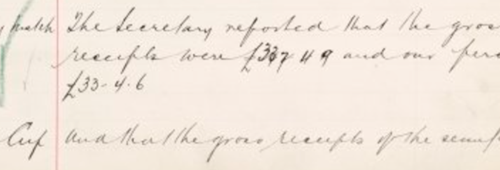 match The Secretary reported that the gros
receipts were £337 4 9 and our per
£33-4-6
Cup and that the gross receipts of the semif